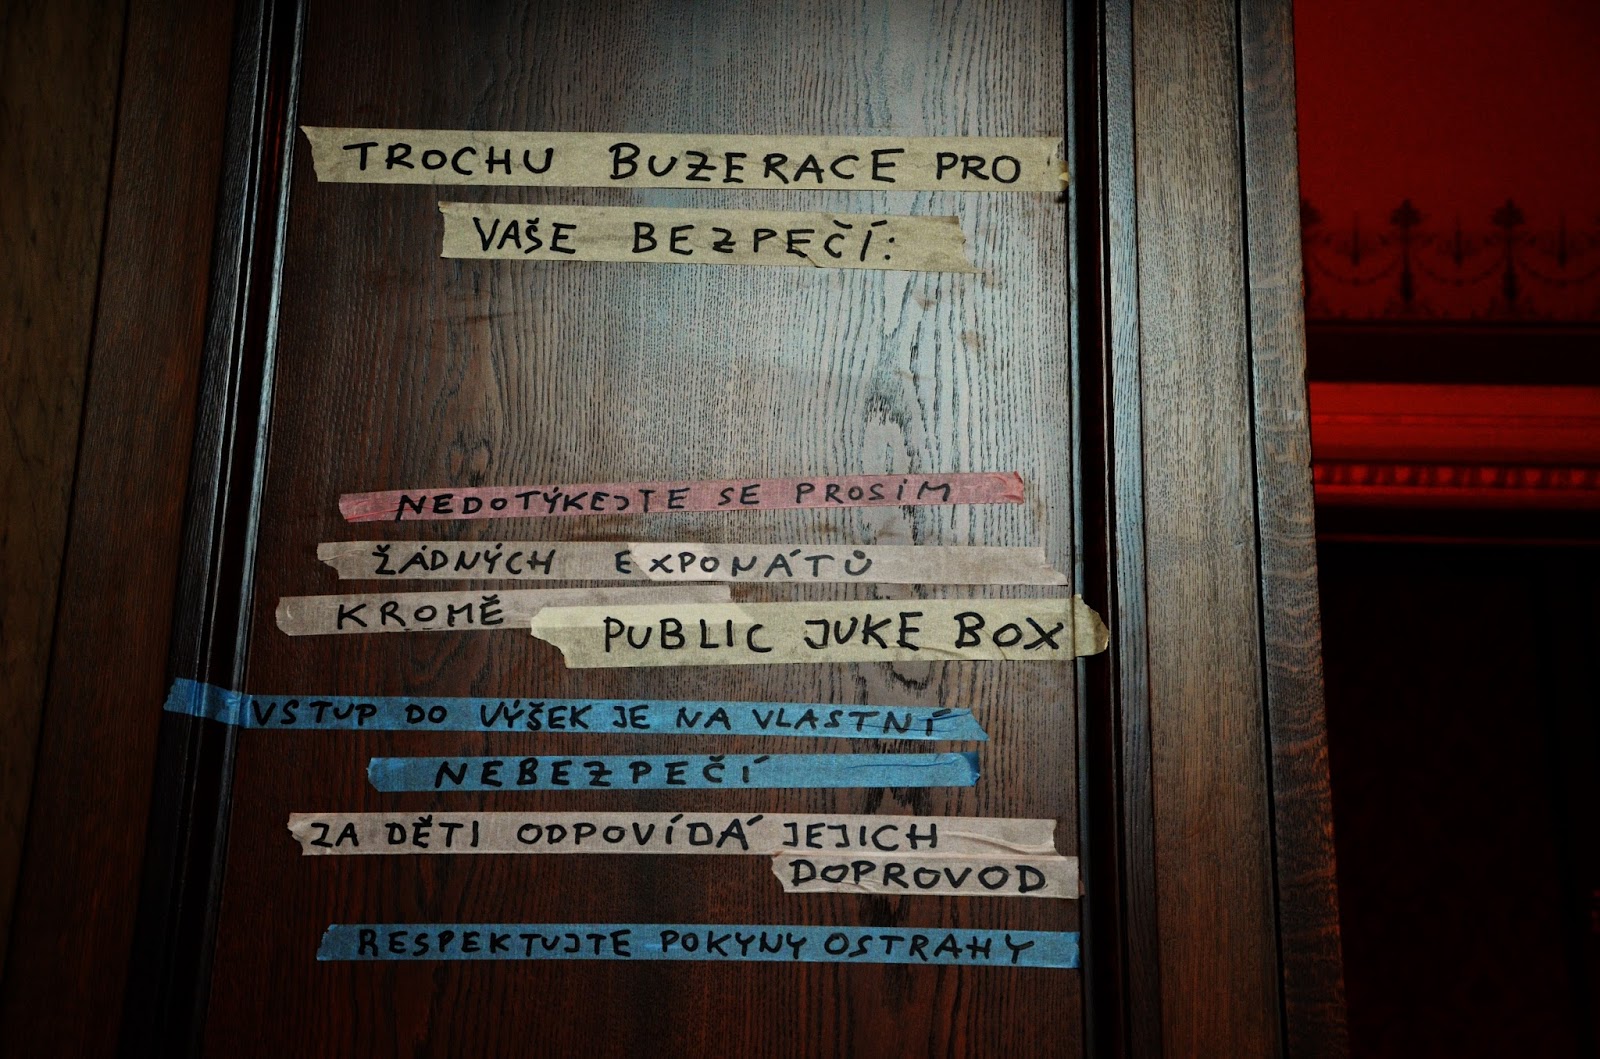 TROCHU BUZERACE PRO
VAŠE BEZPEČÍ:
NEDOTÝKEJTE SE PROSÍM
ŽÁDNÝCH EXPONÁTŮ
KROMĚ PUBLIC JUKE BOX
VSTUP DO VÝŠEK JE NA VLASTNÍ
NEBEZPEČÍ
ZA DĚTI ODPOVÍDÁ JEJICH
DOPROVOD
RESPEKTUJTE POKYNY OSTRAHY